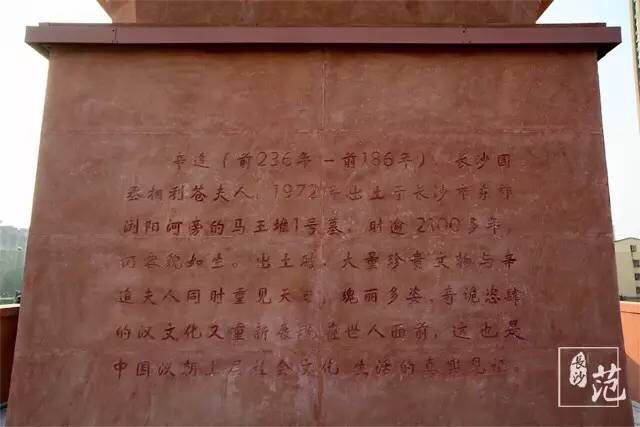 辛追（前236年—前186年），长沙国
丞相利苍夫人，1972年出土于长沙市东郊
浏阳河旁的马王堆1号墓，时逾2100多年，
仍容貌如生。出土时，大量珍贵文物与辛
追夫人同时重见天日，瑰丽多姿、奇诡恣肆
的汉文化又重新展现在世人面前，这也是
中国汉朝上层社会文化生活的真实见证。
长沙
范